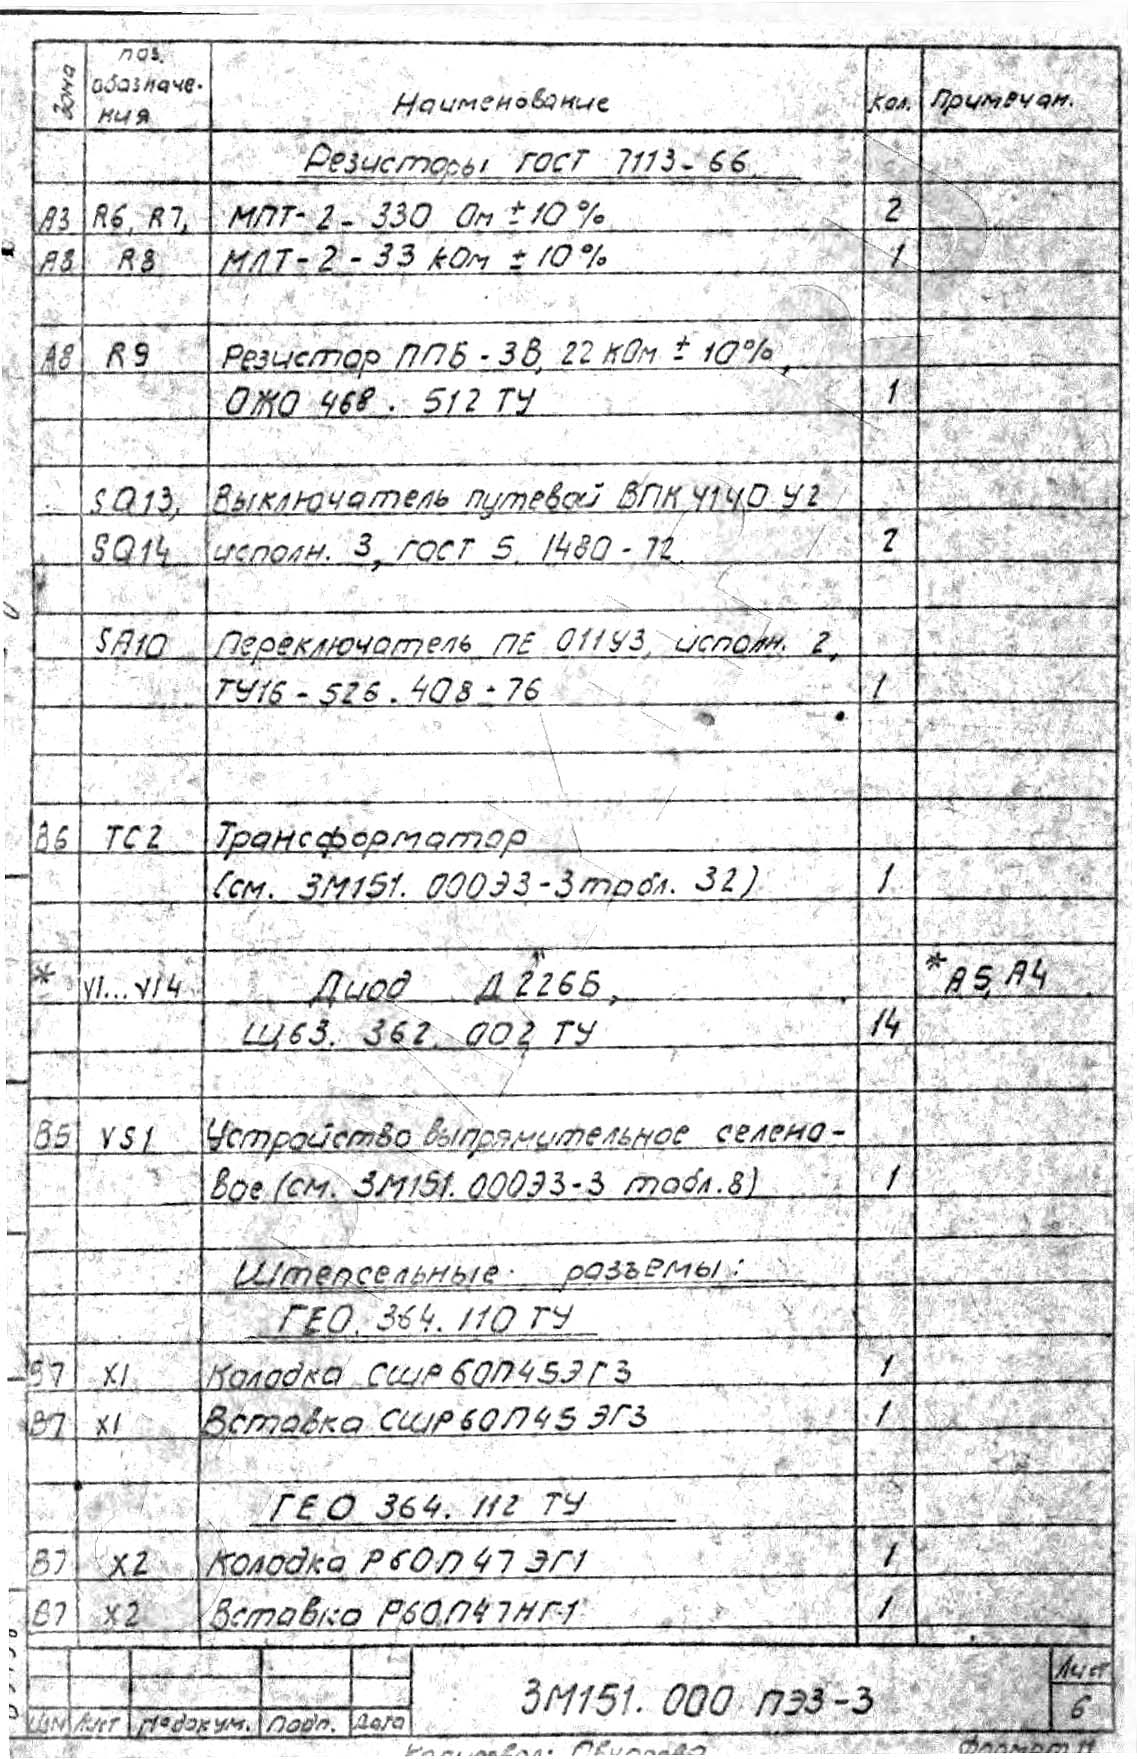 Зона
поз. обозначения
Наименование
Кол.
Примечан.
Резисторы ГОСТ 7113-66
А3 R6, R7, МЛТ-2-330 Ом ±10% 2
А8 R8 МЛТ-2-33 кОм ±10% 1
А8 R9 Резистор ППБ-3В, 22 кОм ±10%,
ОЖО 468. 512 ТУ 1
SQ13, Выключатель путевой ВПК 4140 У2
SQ14 исполн. 3, ГОСТ 5. 1480-72. 2
SA10 Переключатель ПЕ 011У3, исполн. 2,
ТУ16-526.408-76 1
В6 ТС2 Трансформатор
(см. 3М151. 000Э3-3 табл. 32) 1
* V1...V14 Диод Д226Б, * А5, А4
ЩБ3. 362. 002 ТУ 14
В5 VS1 Устройство выпрямительное селено-
вое (см. 3М151. 000Э3-3 табл. 8) 1
Штепсельные разъемы:
ГЕО. 364. 110 ТУ
В7 X1 Колодка СШР60П45ЭГ3 1
В7 X1 Вставка СШР60П45ЭГ3 1
ГЕО 364. 112 ТУ
В7 X2 Колодка Р60П47ЭГ1 1
В7 X2 Вставка Р60П47НГ1 1
Лист
3М151. 000 ПЭ3-3
6
Изм Лист № докум. Подп. Дата
Копировал:
Формат 11